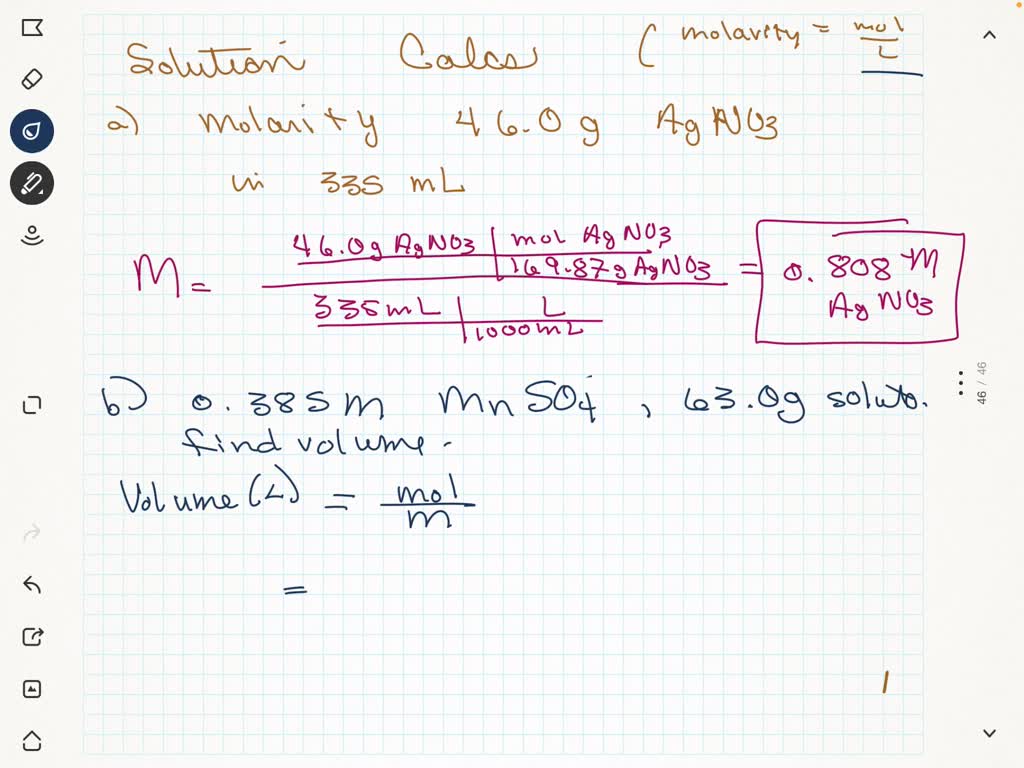 Solution Calcs ( molarity = mol / L
a) molarity 46.0 g AgNO3
in 335 mL
M = 46.0g AgNO3 | mol AgNO3 / 169.87g AgNO3 = 0.808 M
335 mL | L / 1000 mL AgNO3
b) 0.385 M MnSO4, 63.0g solute.
find volume.
Volume (L) = mol / M
=
46 / 46